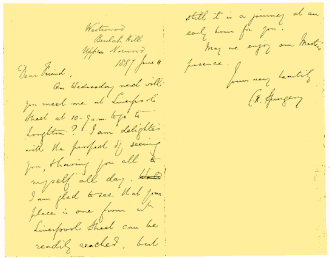 Westwood
Beulah Hill
Upper Norwood
1887 June 11
Dear Friend,
On Wednesday next will
you meet me at Liverpool
Street at 10. 9 am to go to
Loughton? I am delighted
with the prospect of seeing
you, & having you all to
myself all day.
I am glad to see that your
place is one from wh.
Liverpool Street can be
readily reached, but
still it is a journey at an
early hour for you.
May we enjoy our Master's
presence.
Yours very heartily
C. H. Spurgeon